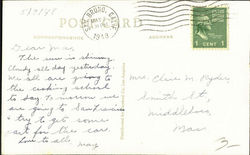 5/9/48
POSTCARD
SAN BRUNO, CALIF.
1948
CORRESPONDENCE
ADDRESS
1 CENT 1
Dear Ma,
The sun is shining,
Cloudy all day yesterday.
We all are going to
the cooking school
to day. To morrow we
are going to San Francisco
& try to get some
cart for the car.
Love to all.
May
Mrs. Clive M. Ryder
Smith St.
Middleboro
Mass